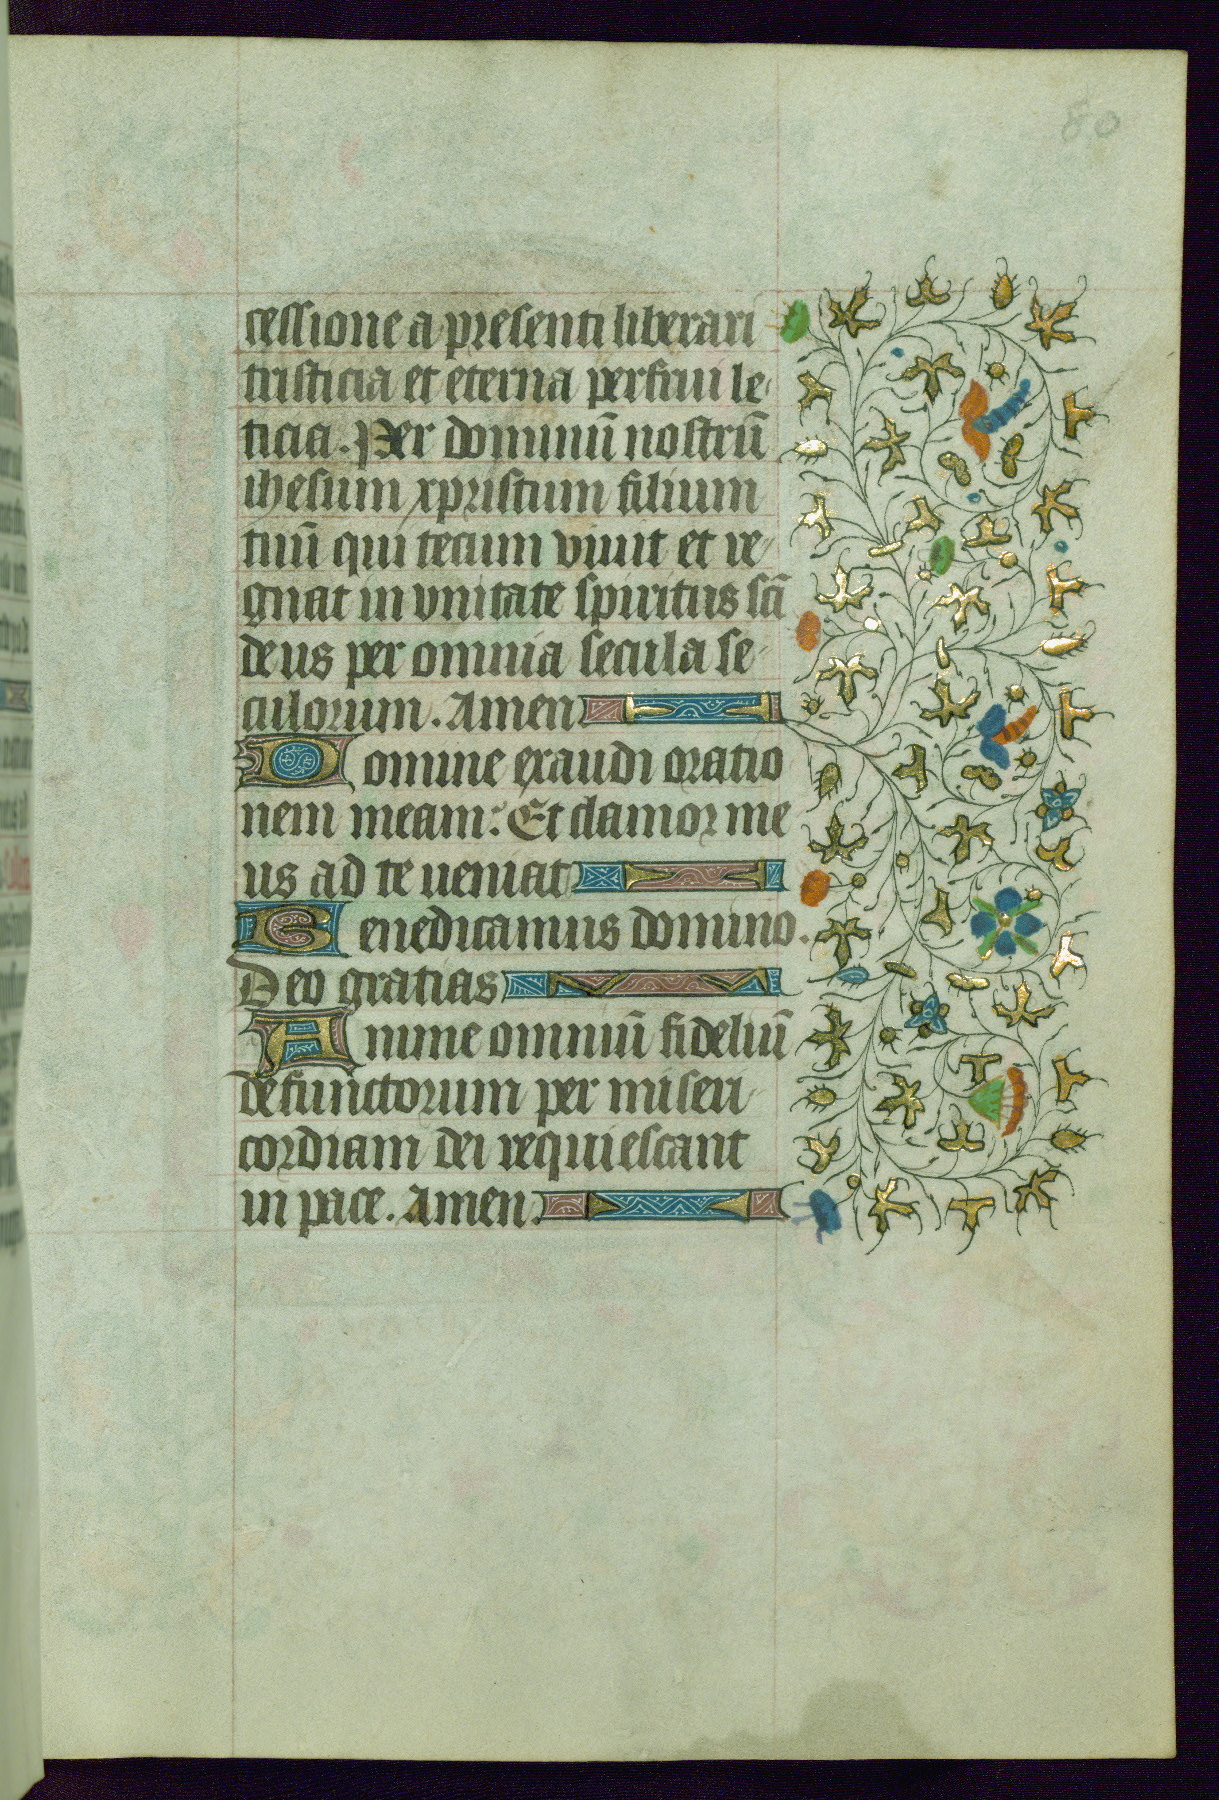 80
cessione a presenti liberari
tristicia et eterna perfrui le-
ticia. Per dominū nostrū
ihesum xpristum filium
tuū qui tecum viuit et re-
gnat in vnitate spiritus sc̄i
deus per omnia secula se-
culorum. Amen
Domine exaudi oratio
nem meam: Et clamor me
us ad te ueniat
Benedicamus domino.
Deo gratias
Anime omniū fideliū
defunctorum per miseri-
cordiam dei requiescant
in pace. Amen.